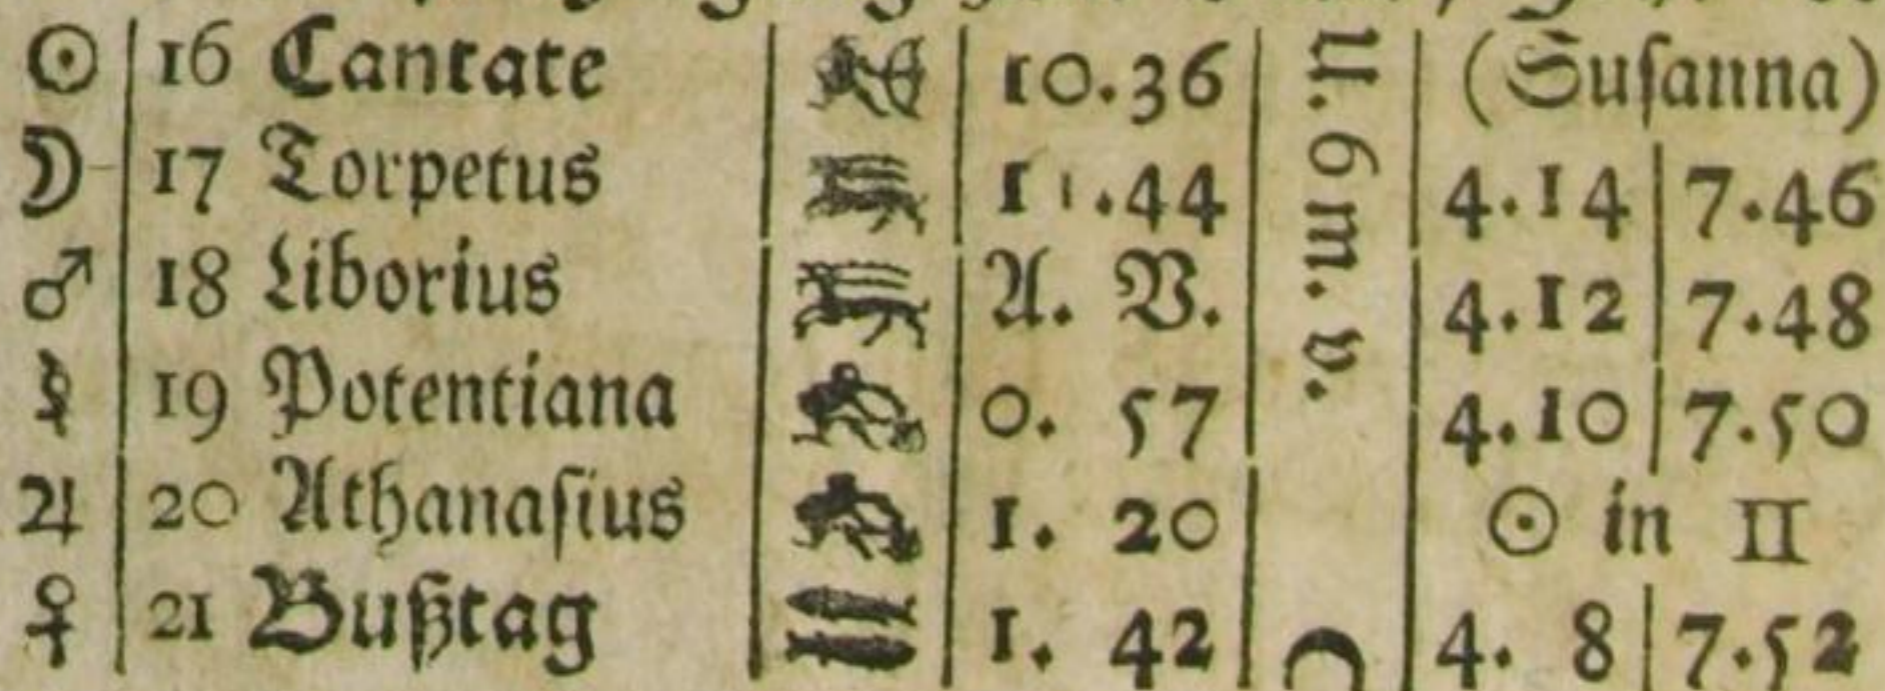 ☉ 16 Cantate 10.36 (Suſanna)
☽ 17 Torpetus 11.44 4.14 7.46
♂ 18 Liborius A. V. 4.12 7.48
☿ 19 Potentiana 0. 57 4.10 7.50
♃ 20 Athanaſius 1. 20 ☉ in II
♀ 21 Bußtag 1. 42 4. 8 7.52
U. 6 m. v.